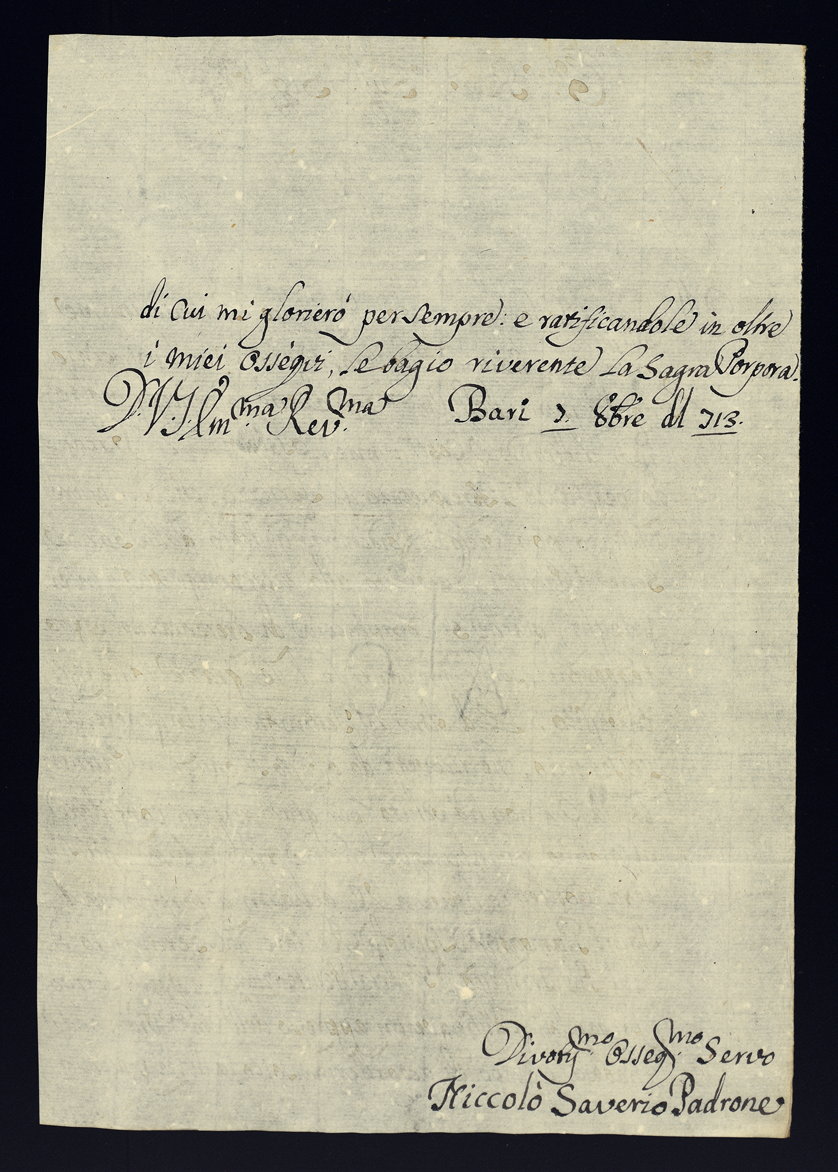 di cui mi glorierò per sempre: e ratificandole in oltre
i miei ossequi, le bagio riverente la Sagra Porpora.
D. V. Ill.ma Rev.ma Bari 7. 8bre del 713.
Divotis.mo Osseq.mo Servo
Niccolò Saverio Padrone